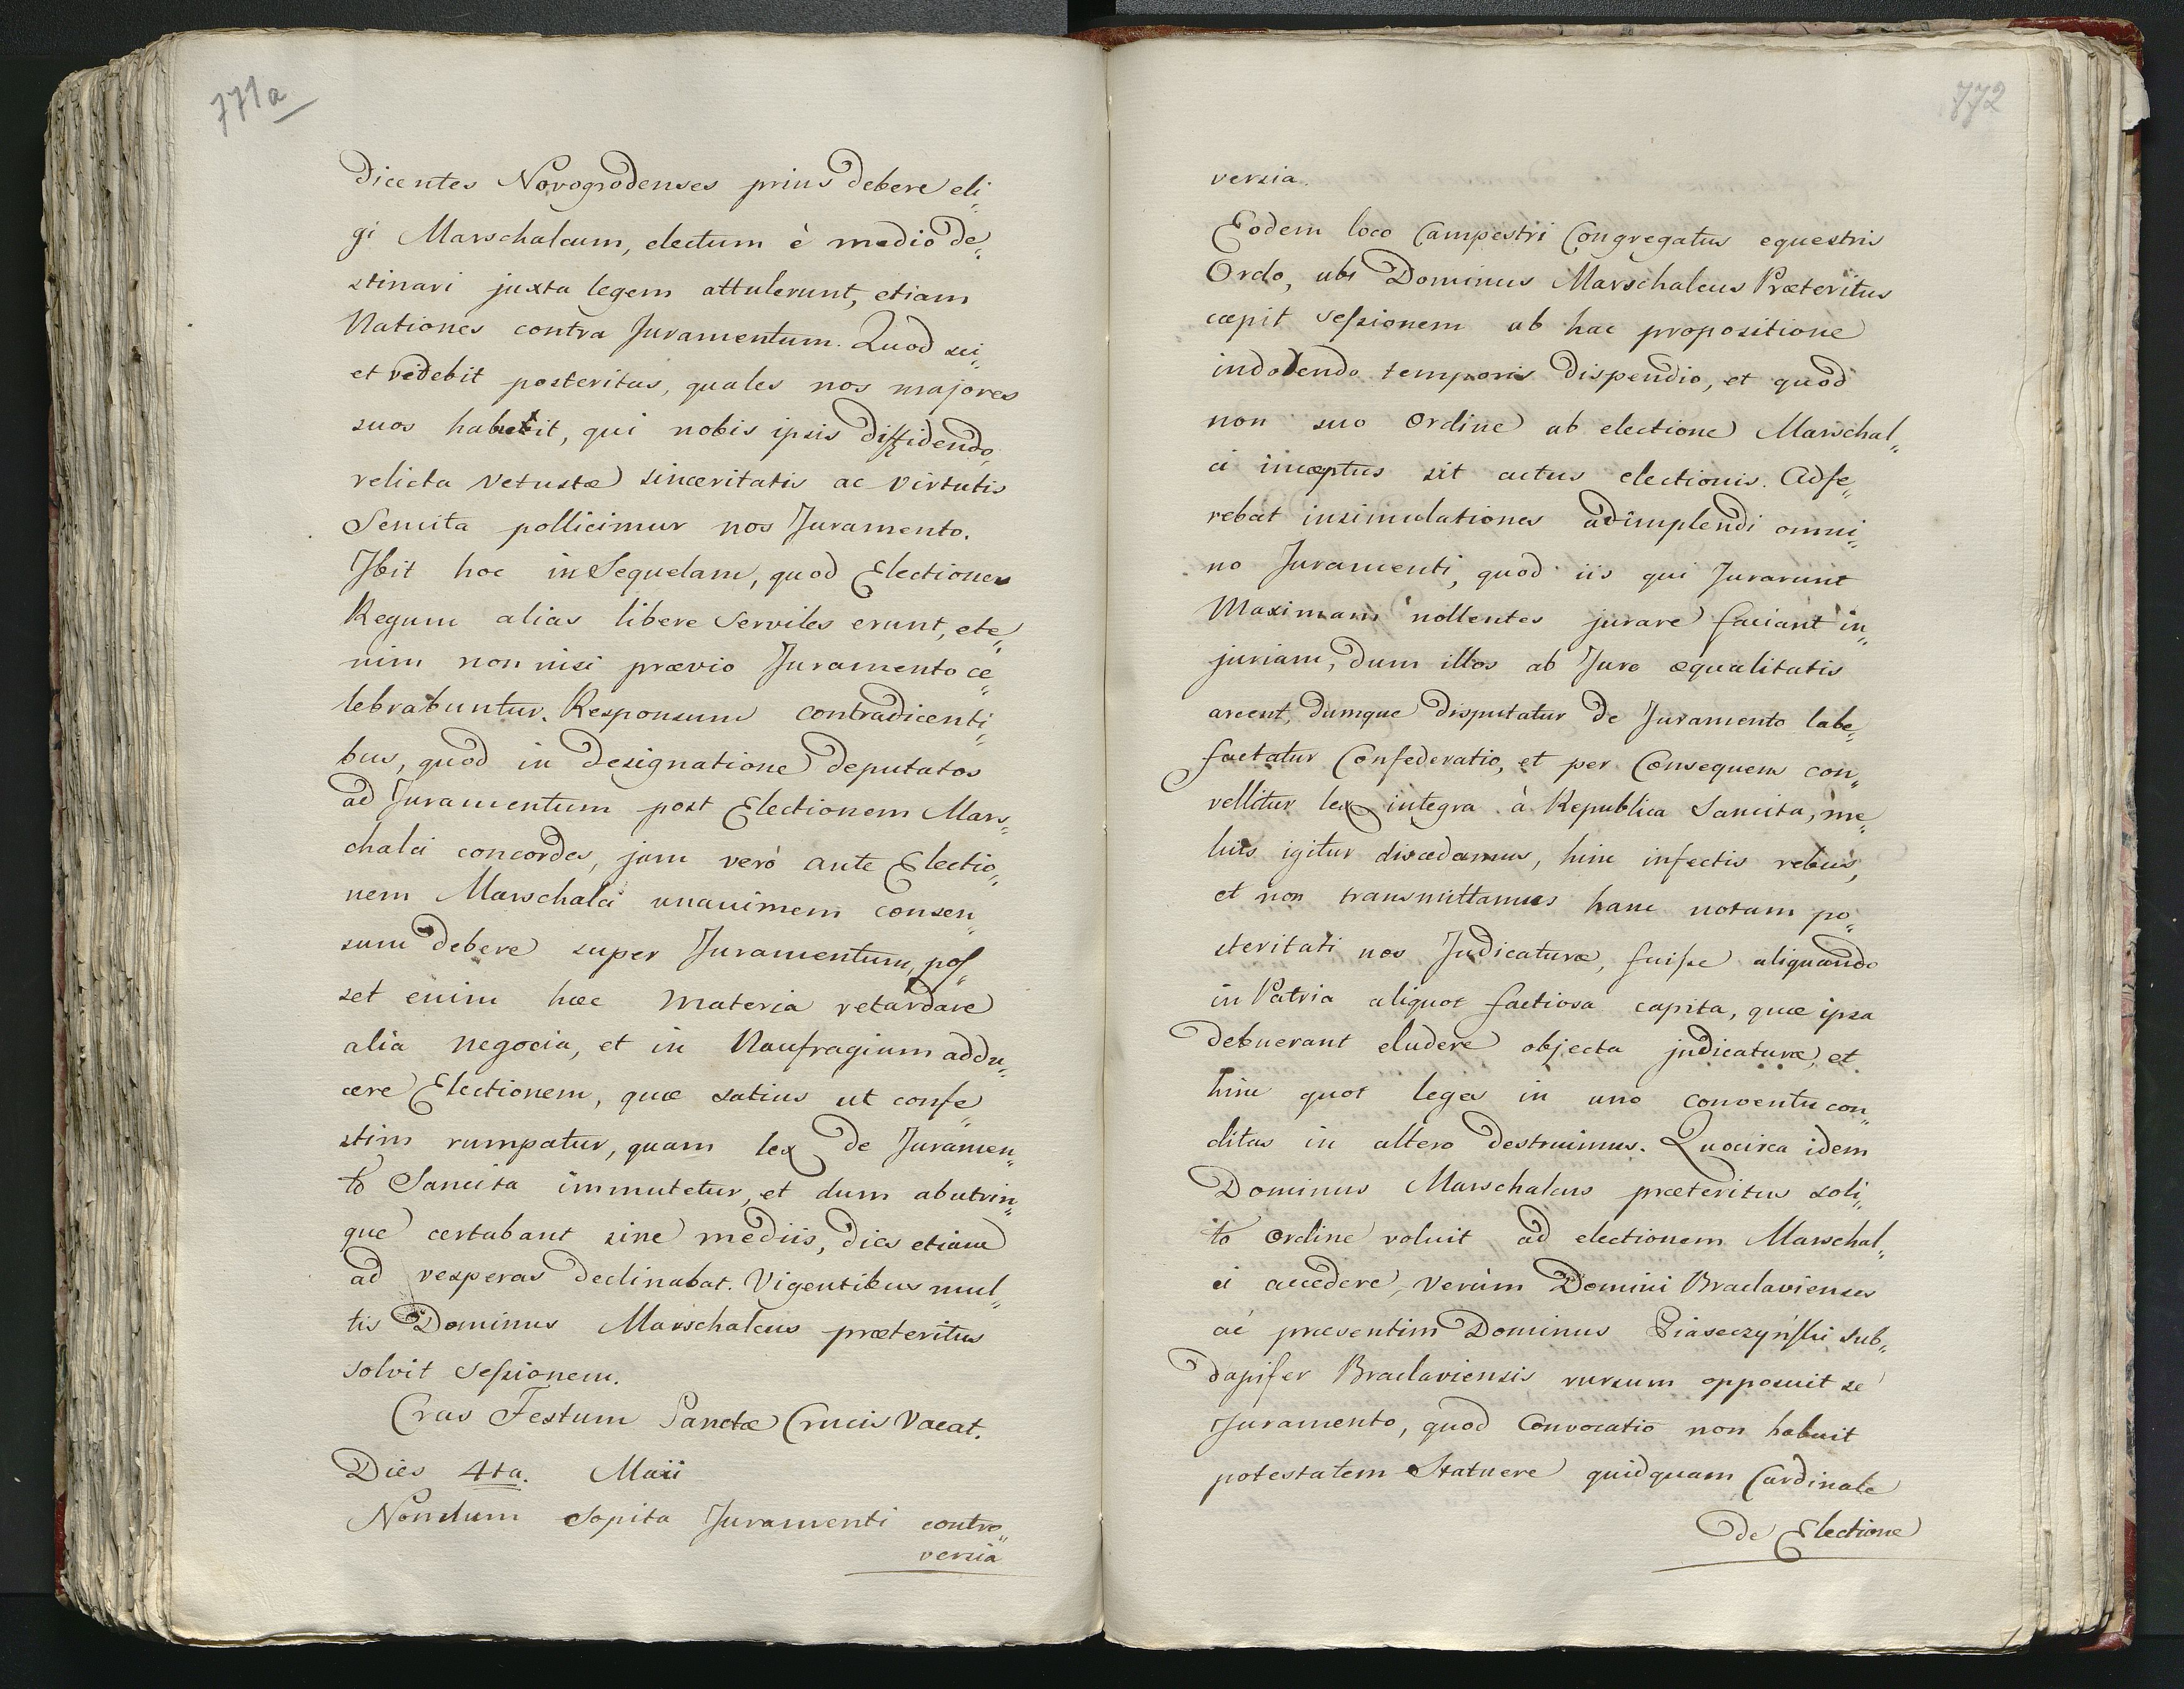 771a
Dicentes Novogrodenses prius debere eli„
gi Marschalcum, electum è medio de„
stinari juxta legem attulerunt, etiam
Nationes contra Juramentum. Quod sci„
et videbit posteritas, quales nos majores
suos habebit, qui nobis ipsis diffidendo,
relicta vetustæ sinceritatis ac virtutis
Semita pollicimur nos Juramento.
Ibit hoc in Sequelam, quod Electiones
Regum alias libere Serviles erunt, ete„
nim non nisi prævio Juramento ce„
lebrabuntur. Responsum contradicenti„
bus, quod in designatione deputatos
ad Juramentum post Electionem Mars„
chalci concordes, jam verò ante Electio„
nem Marschalci unanimem consen„
sum debere super Juramentum, pos„
set enim hæc materia retardare
alia negocia, et in Naufragium addu„
cere Electionem, quæ satius ut confe„
stim rumpatur, quam lex de Juramen„
to Sancita immutetur, et dum abutrin„
que certabant sine mediis, dies etiam
ad vesperas declinabat. Vigentibus mul„
tis Dominus Marschalcus præteritus
solvit sessionem.
Cras Festum Sanctæ Crucis vacat.
Dies 4ta. Maii
Nondum Sopita Juramenti contro„
versia
772
versia.
Eodem loco Campestri Congregatus equestris
Ordo, ubi Dominus Marschalcus Præteritus
cæpit sessionem ab hac propositione
indolendo temporis dispendio, et quod
non suo Ordine ab electione Marschal„
ci inceptus sit actus electionis. Adfe„
rebat insimulationes adimplendi omni„
no Juramenti, quod iis qui Jurarunt
Maximam nollentes jurare faciant in„
juriam, dum illos ab Jure æqualitatis
arcent, dumque disputatur de Juramento labe„
factatur Confederatio, et per Consequens con„
vellitur lex integra à Republica Sancita, me„
lius igitur discedamus, hinc infectis rebus,
et non transmittamus hanc notam po„
steritati nos Judicaturæ, fuisse aliquando
in Patria aliquot factiosa capita, quæ ipsa
debuerant eludere objecta judicaturæ, et
hinc quot leges in uno conventu con„
ditas in altero destruimus. Quocirca idem
Dominus Marschalcus præteritus soli„
to Ordine voluit ad electionem Marschal„
ci accedere, verùm Domini Braclavienses
ac præsentim Dominus Piaseczyński sub„
dapifer Braclaviensis rursum opposuit se
Juramento, quod Convocatio non habuit
potestatem Statuere quidquam Cardinale
de Electione